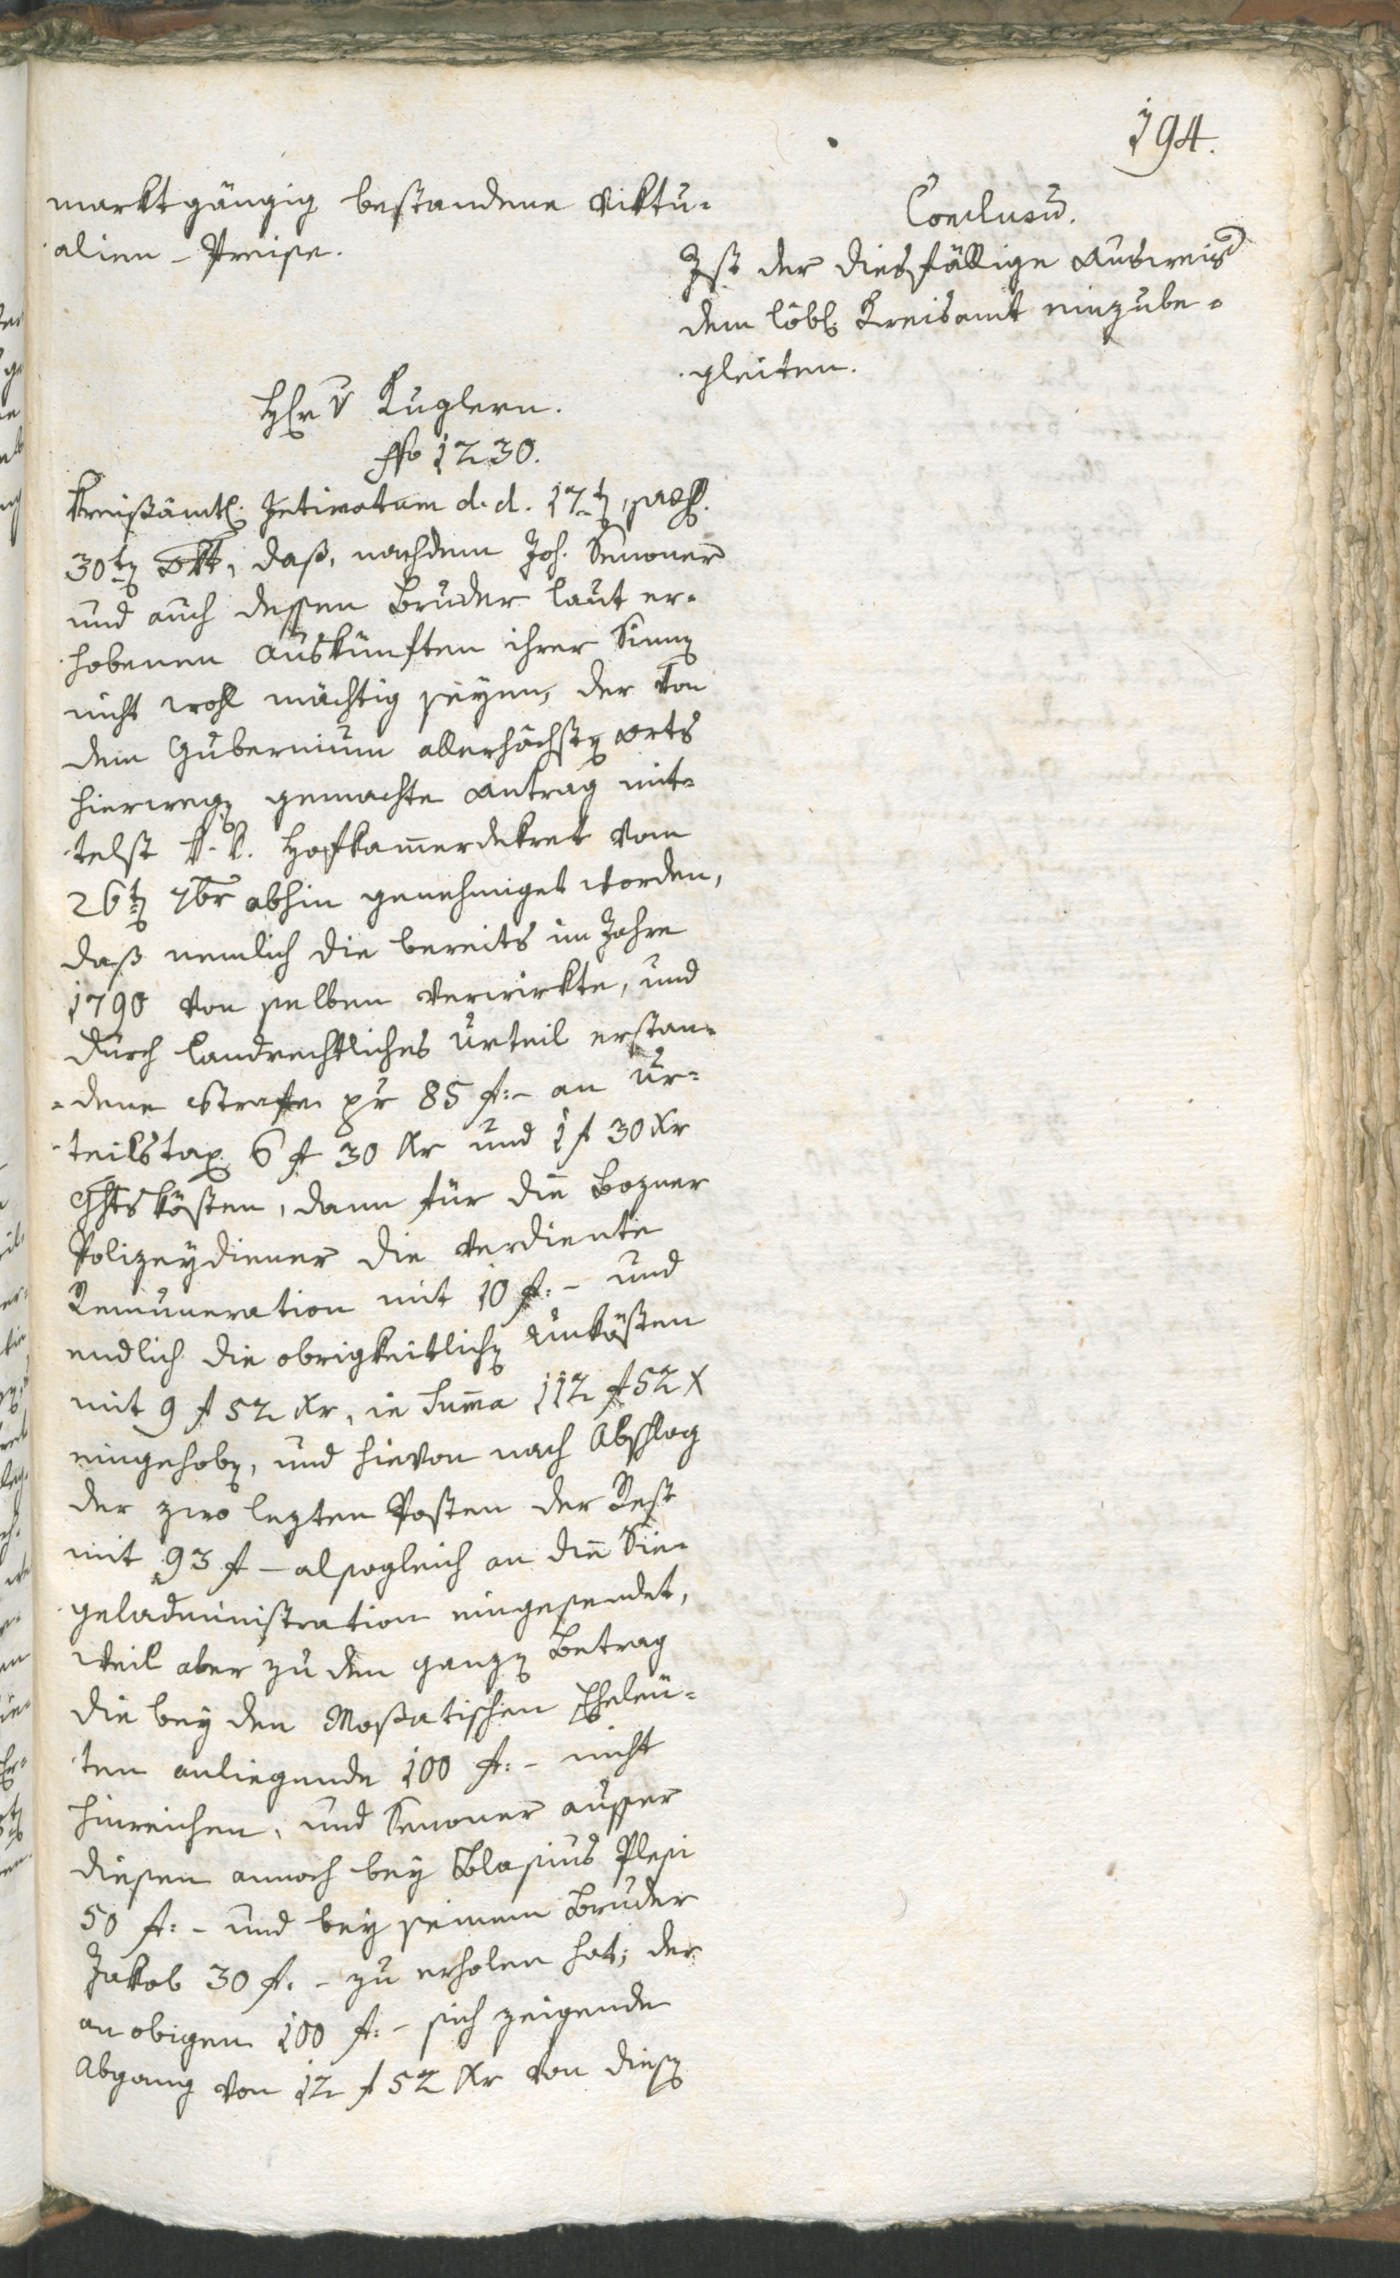 194.
marktgängig bestandene Viktu-
alien-Preise.
Conclusũ.
Ist der diesfällige Ausweis
dem löbl. Kreisamt einzube-
gleiten.
H. v Kuglern.
No 1230.
Kreisämtl. Intimatum d. d. 17t, 
30t 8br, daß, nachdem Joh. Senoner
und auch dessen Bruder laut er-
hobenen Auskünften ihrer Sinne
nicht wohl mächtig seyen, der von
dem Gubernium allerhöchsten Orts
hierwegen gemachte Antrag mit-
telst k. k. Hofkammerdekret vom
26t 7br abhin genehmiget worden,
daß nemlich die bereits im Jahre
1790 von selben verwirkte, und
durch landrechtliches Urteil erstan-
dene Strafe pr 85 f:- an Ur-
teilstax 6 f 30 Xr und 1 f 30 Xr
Ghtskösten, dann für die Bozner
Polizeydiener die verdiente
Remuneration mit 10 f:- und
endlich die obrigkeitlichen Unkösten
mit 9 f 52 Xr, in Suma 112 f 52 X
eingehoben, und hievon nach Abschlag
der zwo lezten Posten der Rest
mit 93 f - alsogleich an die Sie-
geladministration eingesendet,
weil aber zu dem ganzen Betrag
die bey den Moßatischen Eheleu-
ten anliegende 100 f:- nicht
hinreichen, und Senoner ausser
diesen annoch bey Blasius Plesi
50 f:- und bey seinem Bruder
Jakob 30 f.- zu erholen hat; der
an obigen 100 f:- sich zeigende
Abgang von 12 f 52 Xr von diesen